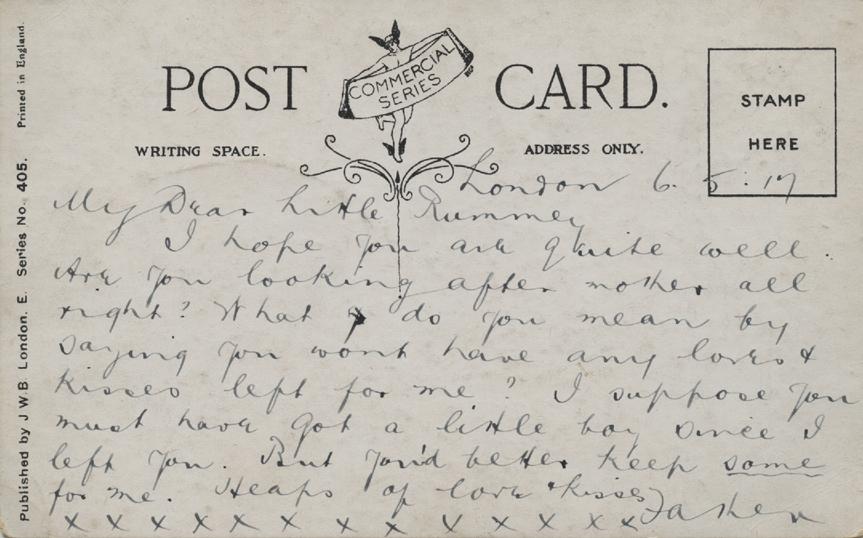 POST CARD.
COMMERCIAL
SERIES
STAMP
HERE
WRITING SPACE.
ADDRESS ONLY.
London 6. 5. 17
My Dear Little Rummey
I hope you are quite well.
Are you looking after mother all
right? What do you mean by
saying you wont have any loves &
kisses left for me? I suppose you
must have got a little boy since I
left you. But you'd better keep some
for me. Heaps of love & kisses
x x x x x x x x x x x x x x Father
Published by J W B London. E. Series No. 405. Printed in England.